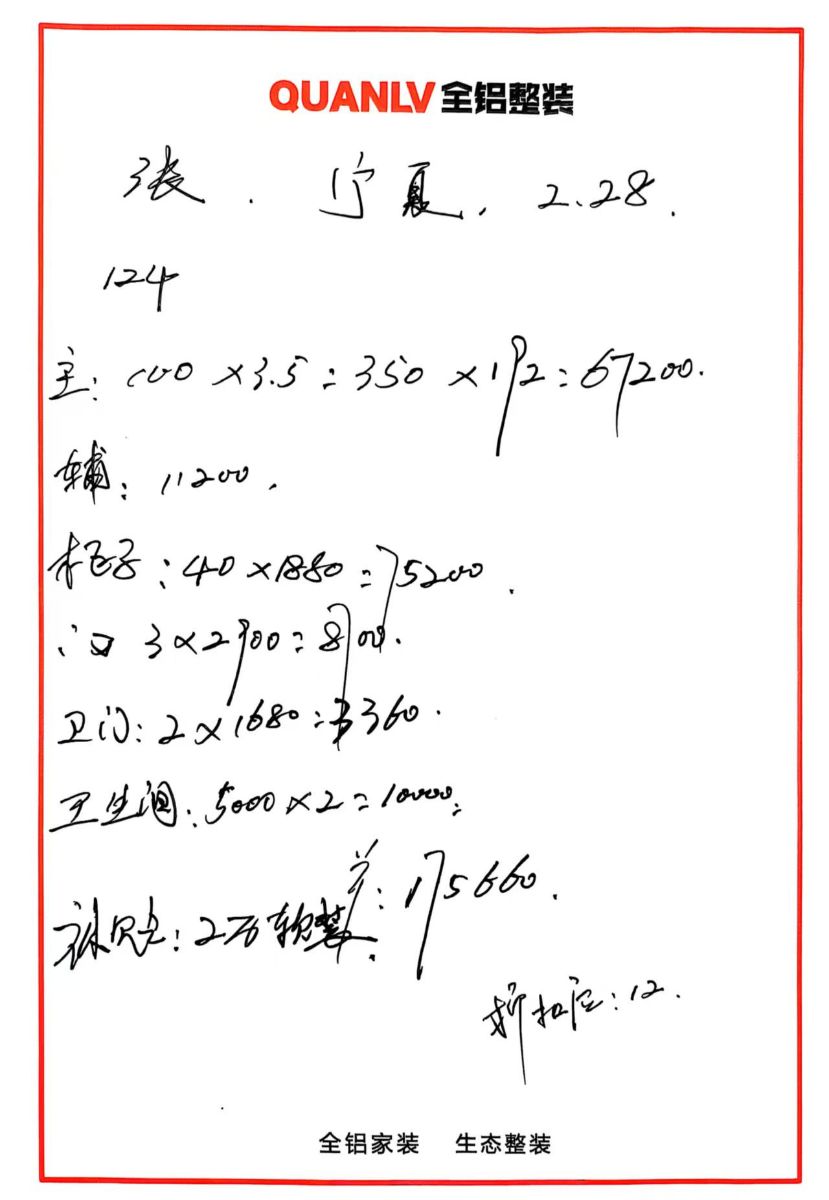 QUANLV 全铝整装
张. 宁夏. 2.28.
124
主: 100 × 3.5 = 350 × 192 = 67200.
辅: 11200.
柜子: 40 × 1880 = 75200.
门 3 × 2900 = 8700.
卫门: 2 × 1680 = 3360.
卫生间: 5000 × 2 = 10000.
共: 175660.
补贴: 2万软装.
折扣后: 12.
全铝家装 生态整装